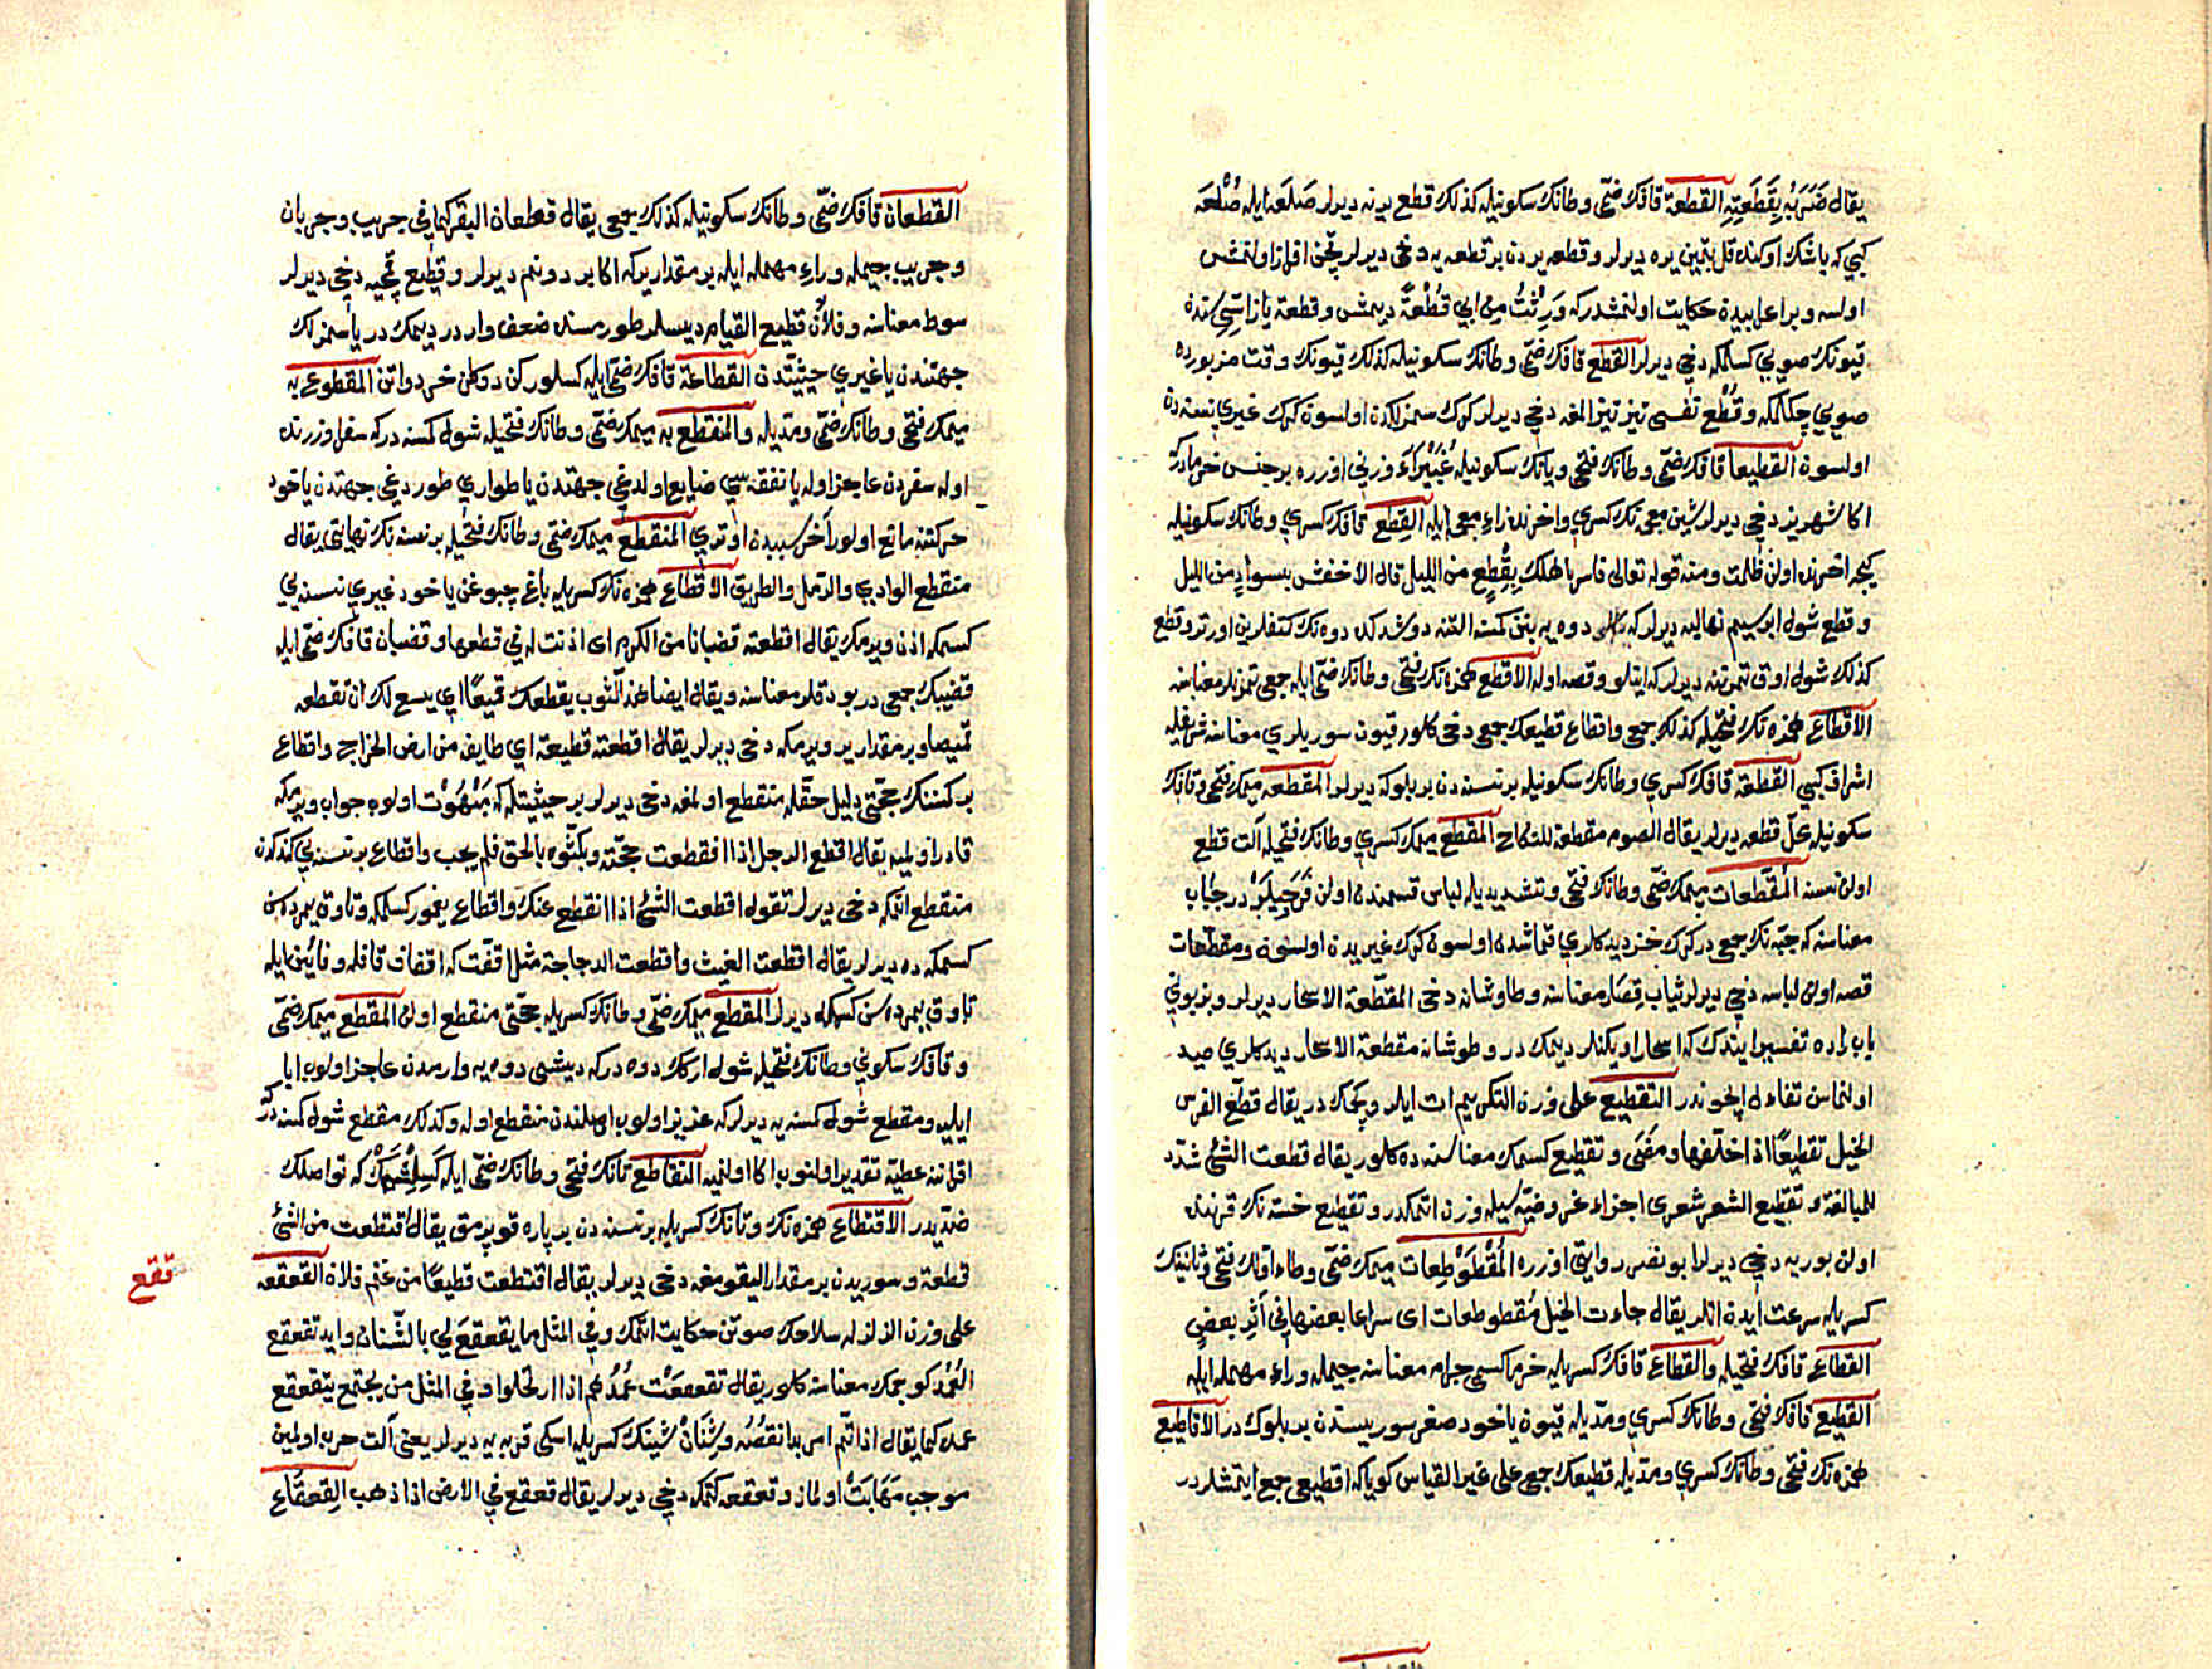 يقال ضَرَبَهُ بِقَطَعَتِهِ القطعة قافك ضمّى و طانك سكونيله كذلك قطع يرنه ديرلر صَلَعَه ايله صُلْعَه
كبي كه باشك اوكنده قل بتمين يره ديرلر و قطعه يردن بر قطعه يه دخى ديرلر قچن افراز اولنمش
اولسه و بر اعرابيدن حكايت اولنمشدركه وَرِثْتُ مِن ابي قُطْعَةً ديمش و قطعة ياز اسّيسنده
قيونك صويي كسلمكه دخى ديرلر القطع قافك ضمّى و طانك سكونيله كذلك قيونك وقت مزبورده
صويي چكلمكه و قُطْع نفسى تيز تيز المغه دخى ديرلر كرك سمزلكدن اولسون كرك غيري نسنه دن
اولسون القطيعا قافك ضمّى و طانك فتحى و يانك سكونيله غُبَيْرَاءَ وزني اوزره بر جنس خرمادر
اكا شهريز دخى ديرلر شين معجمه نك كسري و اخرنده زاء معجمه ايله القطع قافك كسري و طانك سكونيله
كيجه اخرنده اولن ظلمت و منه قوله تعالى فاسر باهلك بِقِطْعٍ من الليل قال الاخفش بسوادٍ من الليل
و قطع شول ابريسيم نهاليه ديرلر كه دوه يه بنن كمسنه التنه دوشدكده دوه نك كتفلرين اورتر و قطع
كذلك شول اوق تمرننه ديرلر كه اينلو و قصه اوله الاقطع همزه نك فتحى و طانك ضمّى ايله جمعى تمرنلر معناسنه
الاقطاع همزه نك فتحيله كذلك جمعى و اقطاع قطيعك جمعى دخى كلور قيون سوريلري معناسنه شريفله
اشراف كبي القطعة قافك كسري و طانك سكونيله بر نسنه دن بر بلوكه ديرلر المقطعه ميمك فتحى و قافك
سكونيله محلّ قطعه ديرلر يقال الصوم مقطعة للنكاح المقطع ميمك كسري و طانك فتحيله آلت قطع
اولن نسنه المُقَطّعات ميمك ضمّى و طانك فتحى و تشديديله لباس قسمندن اولن در جِباب
معناسنه كه جبّه نك جمعى در كرك خز ديدكلري قماشدن اولسون كرك غيريدن اولسون و مقطّعات
قصه اولن لباسه دخى ديرلر ثياب قِصَار معناسنه و طاوشانه دخى المقطّعة الاسحار ديرلر و بز بوني
باب راده تفسير ايتدك كه اسحار اويكنلر ديمك در و طوشانه مقطعة الاسحار ديدكلري صيد
اولنماسن تفاءل ايچوندر التقطيع على وزن التكريم ات ايلرو كچمك در يقال قطّع الفرس
الخيل تقطيعًا اذا خلّفها و مضى و تقطيع كسمك معناسنه ده كلور يقال قطّعت الشئ شدّد
للمبالغة و تقطيع الشعر شعرى اجزاء عروضيّه سيله وزن اتمكدر و تقطيع خسته نك قرننده
اولن بوريه دخى ديرلر ابو نصر روايتى اوزره المُقْطَوْطِعات ميمك ضمّى و طاء اوّلك فتحى و ثانينك
كسريله سرعت ايدن اتلر يقال جاءت الخيل مُقطوطعات اى سراعا بعضها في أَثَرِ بعضٍ
القطاع قافك فتحيله و القطاع قافك كسريله خرما كسمى جرام معناسنه جيمله و راء مهمله ايله
القطيع قافك فتحى و طانك كسري و مدّيله قيون ياخود صغر سوريسندن بر بلوك در الاقاطيع
همزه نك فتحى و طانك كسري و مدّيله قطيعك جمعى على غير القياس كوياكه اقطيعى جمع ايتمشلردر
القطعان قافك ضمّى و طانك سكونيله كذلك جمعى يقال قطعان البقر كما في جريب و جربان
و جريب جيمله و راء مهمله ايله بر مقدار يركه اكا بر دونم ديرلر و قطيع قمچيه دخى ديرلر
سوط معناسنه و فلانٌ قطيع القيام ديسلر طورمسنده ضعف وار در ديمك در يا سمزلك
جهتندن يا غيري حيثيتدن القطاعة قافك ضمّى ايله كسلوركن دوكلن خرده اتن المقطوع به
ميمك فتحى و طانك ضمّى و مدّيله و المنقطع به ميمك ضمّى و طانك فتحيله شول كمسنه دركه سفر اوزرنده
اوله سفردن عاجز اوله يا نفقه سي ضايع اولدغي جهتدن يا طواري طوردغي جهتدن ياخود
حركتنه مانع اولور آخر سببدن اوتري المنقطع ميمك ضمّى و طانك فتحيله بر نسنه نك نهايتى يقال
منقطع الوادي و الرّمل و الطريق الاقطاع همزه نك كسريله باغ چبوغن ياخود غيري نسنه يي
كسمكه اذن ويرمك يقال اقطعته قضبانا من الكرم اى اذنت له في قطعها و قضبان قافك ضمّى ايله
قضيبك جمعى در بودقلر معناسنه و يقال ايضا هذا الثوب يقطعك قميصًا اي يسع لك ان تقطعه
قميصا و بر مقدار ير ويرمكه دخى ديرلر يقال اقطعته قطيعة اي طايفة من ارض الخراج و اقطاع
بر كمسنك حجّتى دليل حقّله منقطع اولمغه دخى ديرلر بر حيثيتله كه مَبْهُوْت اولوب جواب ويرمكه
قادر اولميه يقال اقطع الرجل اذا انقطعت حجّته و بكّتوه بالحق فلم يجب و اقطاع بر نسنه يي كندكدن
منقطع اتمكه دخى ديرلر تقول اقطعت الشئ اذا انقطع عنك و اقطاع يغمور كسلمكه و تاوق يمرده سن
كسمكه ده ديرلر يقال اقطعت الغيث و اقطعت الدجاجة مثل اقفّت كه اقفاف قافله و فائين ايله
تاوق يمرده سن كسمكه ديرلر المقطع ميمك ضمّى و طانك كسريله حجّتى منقطع اولن المقطع ميمك ضمّى
و قافك سكوني و طانك فتحيله شول اركك دوه دركه ديشى دوه يه وارمدن عاجز اولوب ابا
ايليه و مقطع شول كمسنه يه ديرلر كه عزيز اولوب اهلندن منقطع اوله و كذلك مقطع شول كمسنه در
اقراننه عطيّه تقدير اولنوب اكا اولنميه التقاطع تانك فتحى و طانك ضمّى ايله كَسِلِشْمَكْ كه تواصلك
ضدّيدر الاقتطاع همزه نك و تانك كسريله بر نسنه دن بر پاره قوپرمق يقال اقتطعت من الشئ
قطعة و سوريدن بر مقدار اليقومغه دخى ديرلر يقال اقتطعت قطيعًا من غنم فلان القعقعه
على وزن الزلزله سلاحك صوتن حكايت اتمك و في المثل ما يقعقعَ لي بالشّنان و ايد تقعقع
العُمُد كوچمك معناسنه كلور يقال تقعقعت عُمُدُهم اذا ارتحلوا و في المثل من يجتمع يتقعقع
عمده كما يقال اذا تمّ امر بدا نقصُهُ و شِنَانْ شينك كسريله اسكى قربه يه ديرلر يعنى آلت حرب اولمين
موجب مَهَابَتْ اولماز و قعقعه كتمكه دخى ديرلر يقال قعقع في الارض اذا ذهب القعقاع
قعقع